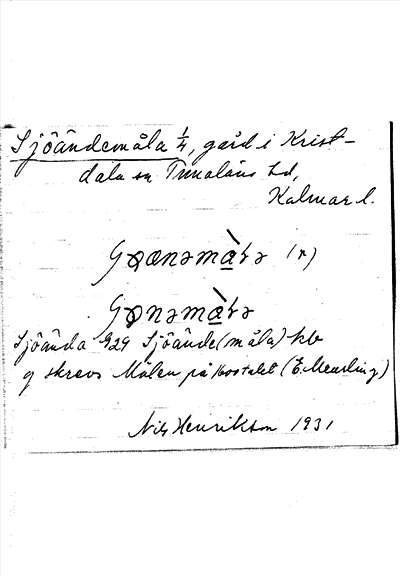 Sjöändemåla 1/4, gård i Krist-
dala sn Tunaläns hd,
Kalmar l.
(x)
Sjöända 1929 Sjöände(måla) kb
g skrevs Målen på 1600talet (E. Meurling)
Nils Henrikson 1931